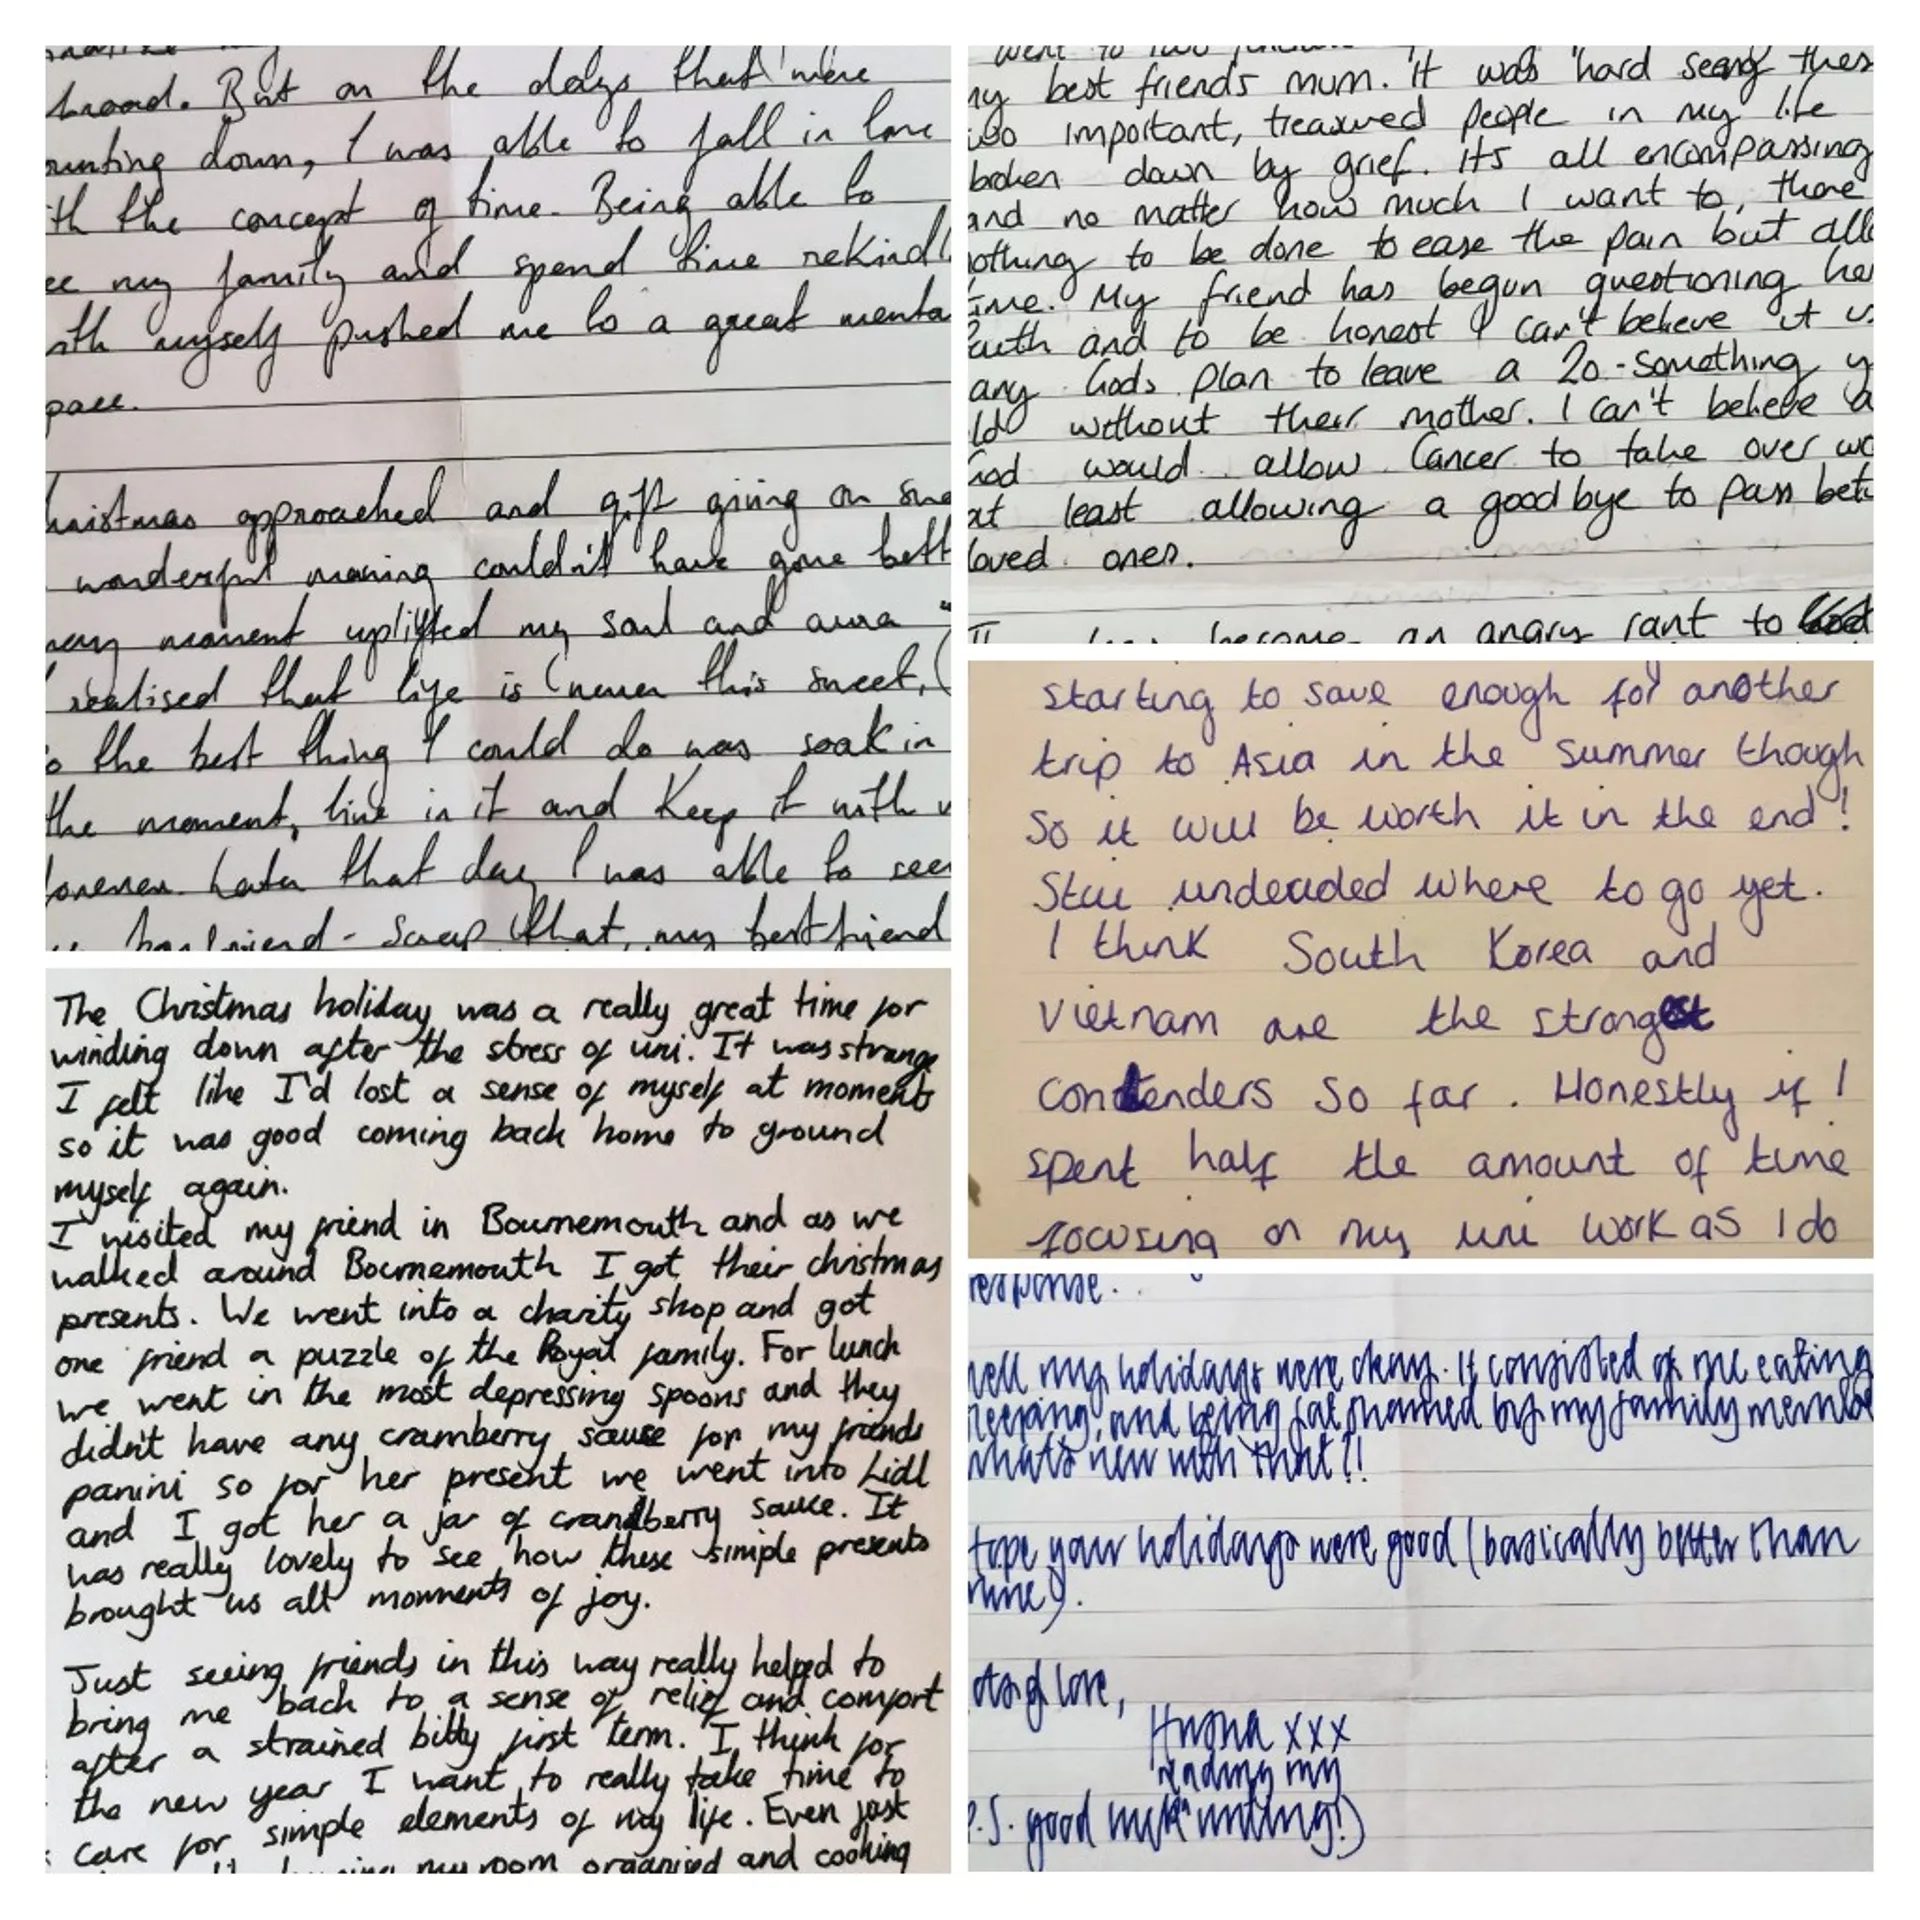 broad. But on the days that were
unting down, I was able to fall in love
th the concept of time. Being able to
ee my family and spend time rekindl
ith myself pushed me to a great menta
pace.
hristmas approached and gift giving on
wonderful morning couldn't have gone bett
moment uplifted my soul and aura "
I realised that life is (never this sweet, (
o the best thing I could do was soak in
the moment, live in it and keep it with
forever. Later that day I was able to see
boyfriend - Scrap that, my best friend
The Christmas holiday was a really great time for
winding down after the stress of uni. It was strange
I felt like I'd lost a sense of myself at moments
so it was good coming back home to ground
myself again.
I visited my friend in Bournemouth and as we
walked around Bournemouth I got their christmas
presents. We went into a charity shop and got
one friend a puzzle of the Royal family. For lunch
we went in the most depressing spoons and they
didn't have any cramberry sause for my friends
panini so for her present we went into Lidl
and I got her a jar of cranberry sauce. It
was really lovely to see how these simple presents
brought us all moments of joy.
Just seeing friends in this way really helped to
bring me back to a sense of relief and comfort
after a strained bitty first term. I think for
the new year I want to really take time to
care for simple elements of my life. Even just
my room organised and cooking
went to two
my best friends mum. It was hard seeing thes
wo important, treasured people in my life
broken down by grief. Its all encompassing
and no matter how much I want to, there
othing to be done to ease the pain but all
ime. My friend has begun questioning he
aith and to be honest I can't believe it is
any Gods plan to leave a 20-something y
ld without their mother. I can't believe a
God would allow Cancer to take over
at least allowing a goodbye to pass bet
loved ones.
become an angry rant to God
starting to save enough for another
trip to Asia in the summer though
so it will be worth it in the end!
Still undecided where to go yet.
I think South Korea and
Vietnam are the strongest
contenders so far. Honestly if I
spent half the amount of time
focusing on my uni work as I do
response.
well my holidays were okay. It consisted of me eating
leeping, and being fat shamed by my family membe
whats new with that?!
Hope your holidays were good (basically better than
mine).
love,
xxx
reading my
P.S. good luck writing!)